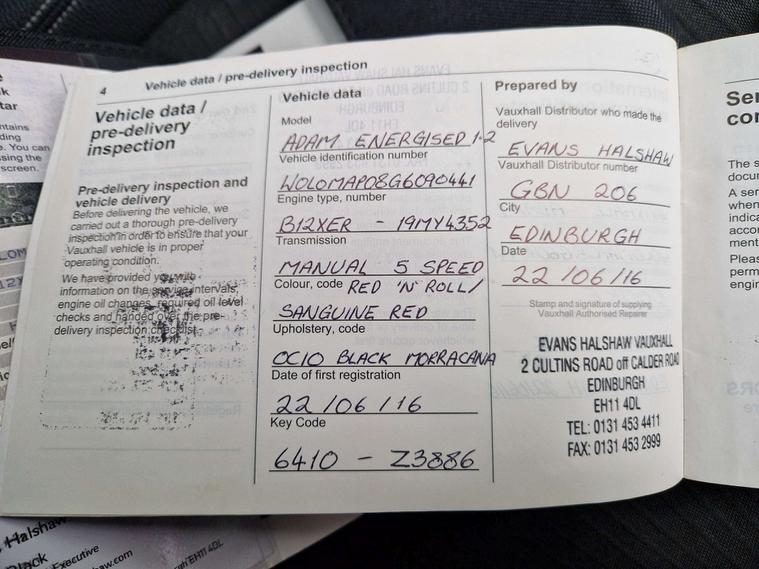 4 Vehicle data / pre-delivery inspection
Vehicle data /
pre-delivery
inspection
Pre-delivery inspection and
vehicle delivery
Before delivering the vehicle, we
carried out a thorough pre-delivery
inspection in order to ensure that your
Vauxhall vehicle is in proper
operating condition.
We have provided you with
information on the service intervals,
engine oil changes, required oil level
checks and handed over the pre-
delivery inspection checklist.
Vehicle data
Model
ADAM ENERGISED 1.2
Vehicle identification number
WOLOMAP08G6090441
Engine type, number
B12XER - 19MY4352
Transmission
MANUAL 5 SPEED
Colour, code RED 'N' ROLL/
SANGUINE RED
Upholstery, code
OC10 BLACK MORRACANA
Date of first registration
22/06/16
Key Code
6410 - Z3886
Prepared by
Vauxhall Distributor who made the
delivery
EVANS HALSHAW
Vauxhall Distributor number
GBN 206
City
EDINBURGH
Date
22/06/16
Stamp and signature of supplying
Vauxhall Authorised Repairer
EVANS HALSHAW VAUXHALL
2 CULTINS ROAD off CALDER ROAD
EDINBURGH
EH11 4DL
TEL: 0131 453 4411
FAX: 0131 453 2999
Halshaw
Black
Executive
EH11 4DL